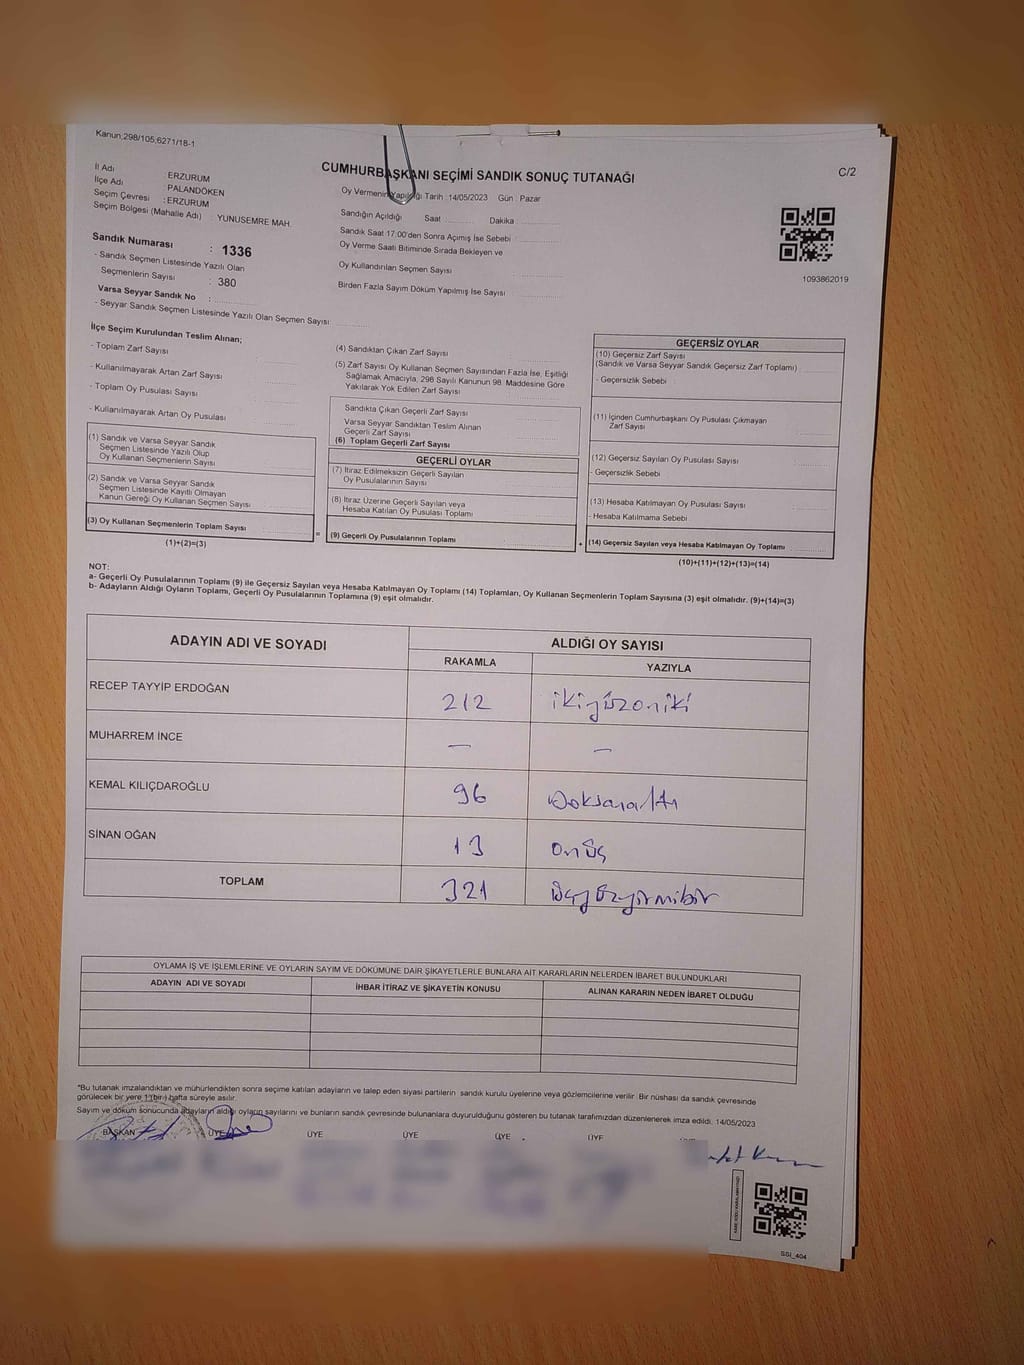 Kanun,298/105,6271/18-1
C/2
CUMHURBAŞKANI SEÇİMİ SANDIK SONUÇ TUTANAĞI
İl Adı ERZURUM
İlçe Adı PALANDÖKEN
Seçim Çevresi : ERZURUM
Seçim Bölgesi (Mahalle Adı) : YUNUSEMRE MAH.
Sandık Numarası : 1336
- Sandık Seçmen Listesinde Yazılı Olan
Seçmenlerin Sayısı : 380
Varsa Seyyar Sandık No :
- Seyyar Sandık Seçmen Listesinde Yazılı Olan Seçmen Sayısı:
Oy Vermenin Yapıldığı Tarih : 14/05/2023 Gün : Pazar
Sandığın Açıldığı Saat Dakika :
Sandık Saat 17:00'den Sonra Açımış İse Sebebi :
Oy Verme Saati Bitiminde Sırada Bekleyen ve
Oy Kullandırılan Seçmen Sayısı
Birden Fazla Sayım Döküm Yapılmış İse Sayısı
1093862019
İlçe Seçim Kurulundan Teslim Alınan;
- Toplam Zarf Sayısı
- Kullanılmayarak Artan Zarf Sayısı
- Toplam Oy Pusulası Sayısı
- Kullanılmayarak Artan Oy Pusulası
(1) Sandık ve Varsa Seyyar Sandık
Seçmen Listesinde Yazılı Olup
Oy Kullanan Seçmenlerin Sayısı
(2) Sandık ve Varsa Seyyar Sandık
Seçmen Listesinde Kayıtlı Olmayan
Kanun Gereği Oy Kullanan Seçmen Sayısı
(3) Oy Kullanan Seçmenlerin Toplam Sayısı
(1)+(2)=(3)
=
(4) Sandıktan Çıkan Zarf Sayısı
(5) Zarf Sayısı Oy Kullanan Seçmen Sayısından Fazla İse, Eşitliği
Sağlamak Amacıyla, 298 Sayılı Kanunun 98. Maddesine Göre
Yakılarak Yok Edilen Zarf Sayısı
Sandıkta Çıkan Geçerli Zarf Sayısı
Varsa Seyyar Sandıktan Teslim Alınan
Geçerli Zarf Sayısı
(6) Toplam Geçerli Zarf Sayısı
GEÇERLİ OYLAR
(7) İtiraz Edilmeksizin Geçerli Sayılan
Oy Pusulalarının Sayısı
(8) İtiraz Üzerine Geçerli Sayılan veya
Hesaba Katılan Oy Pusulası Toplamı
(9) Geçerli Oy Pusulalarının Toplamı
+
GEÇERSİZ OYLAR
(10) Geçersiz Zarf Sayısı
(Sandık ve Varsa Seyyar Sandık Geçersiz Zarf Toplamı)
- Geçersizlik Sebebi
(11) İçinden Cumhurbaşkanı Oy Pusulası Çıkmayan
Zarf Sayısı
(12) Geçersiz Sayılan Oy Pusulası Sayısı
- Geçersizlik Sebebi
(13) Hesaba Katılmayan Oy Pusulası Sayısı
- Hesaba Katılmama Sebebi
(14) Geçersiz Sayılan veya Hesaba Katılmayan Oy Toplamı
(10)+(11)+(12)+(13)=(14)
NOT:
a- Geçerli Oy Pusulalarının Toplamı (9) ile Geçersiz Sayılan veya Hesaba Katılmayan Oy Toplamı (14) Toplamları, Oy Kullanan Seçmenlerin Toplam Sayısına (3) eşit olmalıdır. (9)+(14)=(3)
b- Adayların Aldığı Oyların Toplamı, Geçerli Oy Pusulalarının Toplamına (9) eşit olmalıdır.
ADAYIN ADI VE SOYADI
ALDIĞI OY SAYISI
RAKAMLA YAZIYLA
RECEP TAYYİP ERDOĞAN 212 ikiyüzoniki
MUHARREM İNCE — —
KEMAL KILIÇDAROĞLU 96 Doksanaltı
SİNAN OĞAN 13 onüç
TOPLAM 321 üçyüzyirmibir
OYLAMA İŞ VE İŞLEMLERİNE VE OYLARIN SAYIM VE DÖKÜMÜNE DAİR ŞİKAYETLERLE BUNLARA AİT KARARLARIN NELERDEN İBARET BULUNDUKLARI
ADAYIN ADI VE SOYADI İHBAR İTİRAZ VE ŞİKAYETİN KONUSU ALINAN KARARIN NEDEN İBARET OLDUĞU
*Bu tutanak imzalandıktan ve mühürlendikten sonra seçime katılan adayların ve talep eden siyasi partilerin sandık kurulu üyelerine veya gözlemcilerine verilir. Bir nüshası da sandık çevresinde
görülecek bir yere 1 (bir) hafta süreyle asılır.
Sayım ve döküm sonucunda adayların aldığı oyların sayılarını ve bunların sandık çevresinde bulunanlara duyurulduğunu gösteren bu tutanak tarafımızdan düzenlenerek imza edildi. 14/05/2023
BAŞKAN ÜYE ÜYE ÜYE ÜYE ÜYE
SSI_404